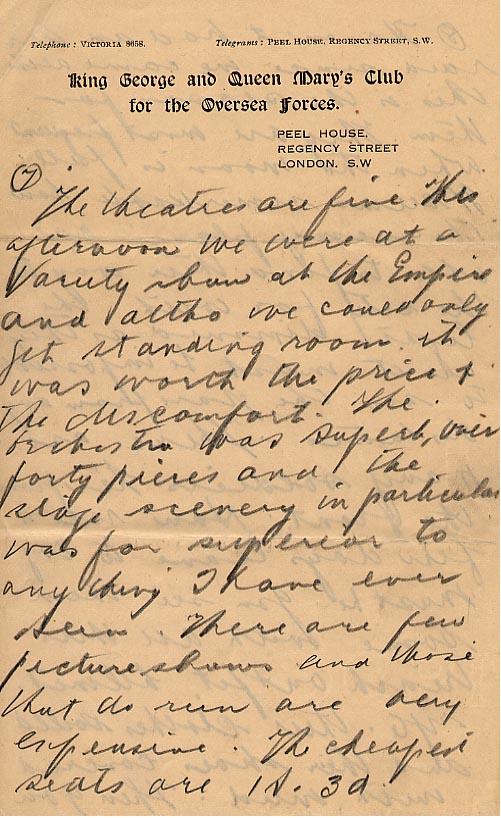 Telephone: VICTORIA 8658. Telegrams: PEEL HOUSE, REGENCY STREET, S.W.
King George and Queen Mary's Club
for the Oversea Forces.
PEEL HOUSE,
REGENCY STREET
LONDON. S.W
7
The theatres are fine. This
afternoon we were at a
Variety show at the Empire
and altho we could only
get standing room it
was worth the price &
the discomfort. The
orchestra was superb, over
forty pieces and the
stage scenery in particular
was far superior to
any thing I have ever
seen. There are few
picture shows and those
that do run are very
expensive. The cheapest
seats are 1s. 3d.